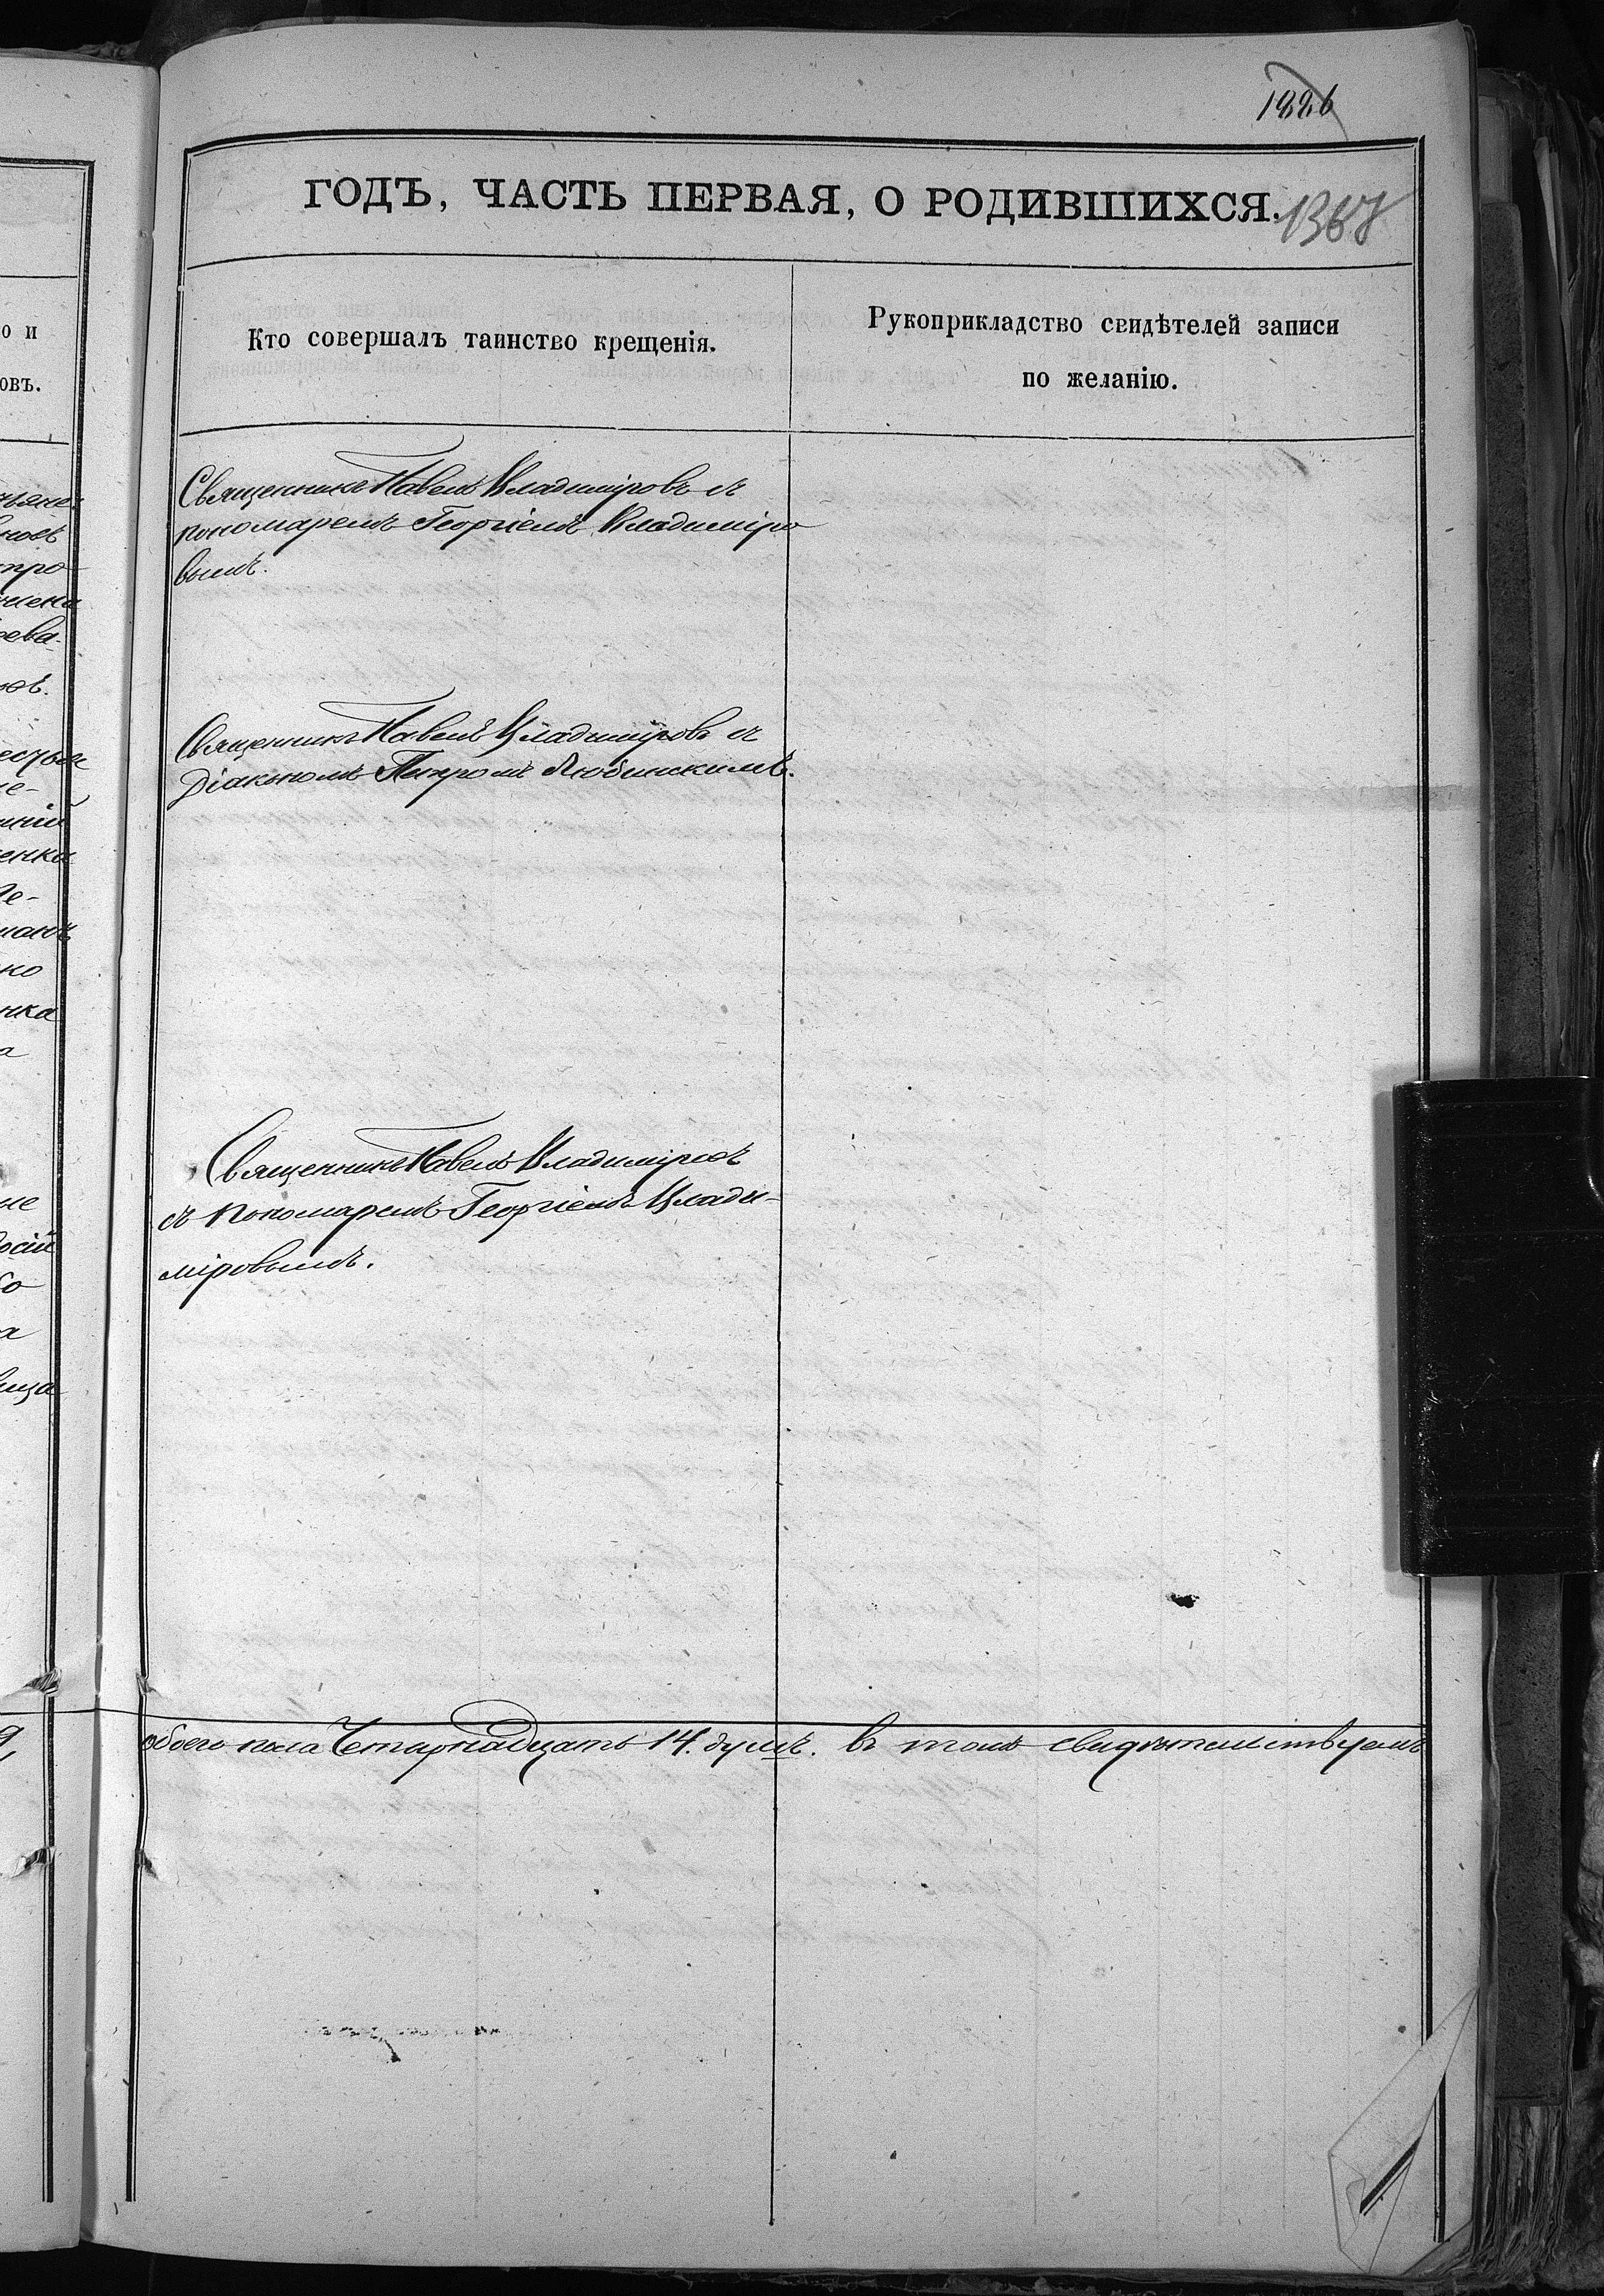 1886
ГОДЪ, ЧАСТЬ ПЕРВАЯ, О РОДИВШИХСЯ.
1367
о и
овъ.
Кто совершалъ таинство крещенія.
Рукоприкладство свидѣтелей записи
по желанію.
Священникъ Павелъ Владиміровъ съ
пономаремъ Георгіемъ Владиміро
вымъ.
Священникъ Павелъ Владиміровъ съ
Діакономъ Петромъ Любинскимъ.
Священникъ Павелъ Владиміровъ
съ пономаремъ Георгіемъ Влади-
міровымъ.
обоего пола Четырнадцать 14. душъ. въ томъ свидѣтельствуемъ